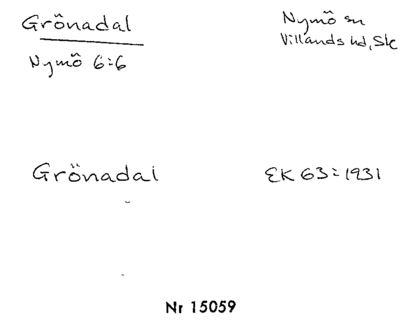 Grönadal
Nymö sn
Villands hd, Sk
Nymö 6:6
Grönadal
EK 63:1931
Nr 15059